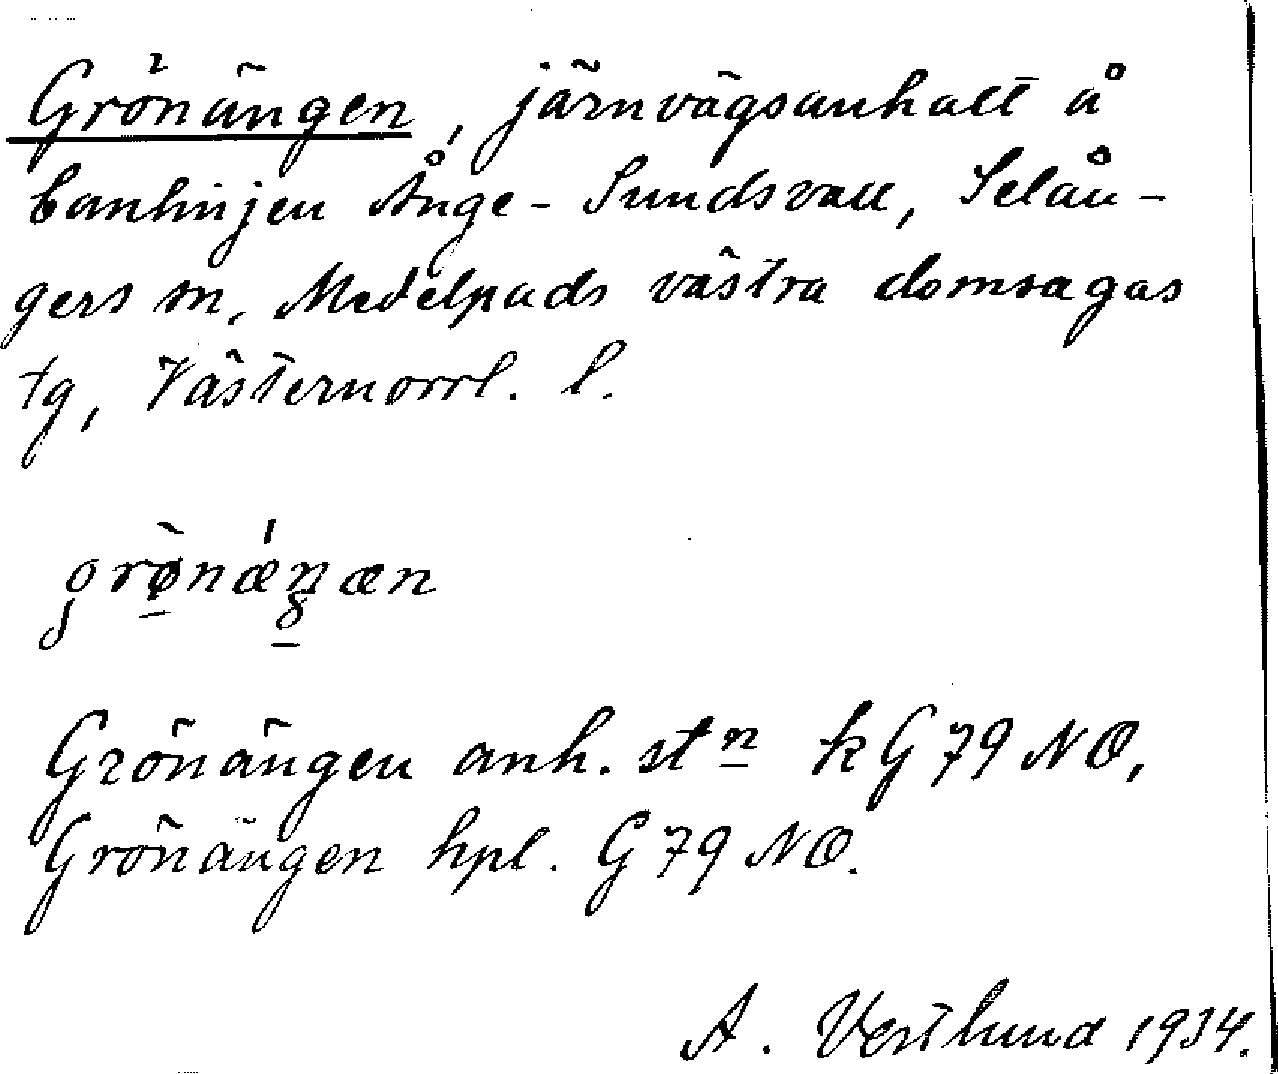 Grönängen, järnvägsanhalt å
banlinjen Ånge - Sundsvall, Selån-
gers sn, Medelpads västra domsagas
tg, Västernorrl. l.
grø̀nǽŋæn
Grönängen anh. stn kG79NO,
Grönängen hpl. G79NO.
A. Vestlund 1934.